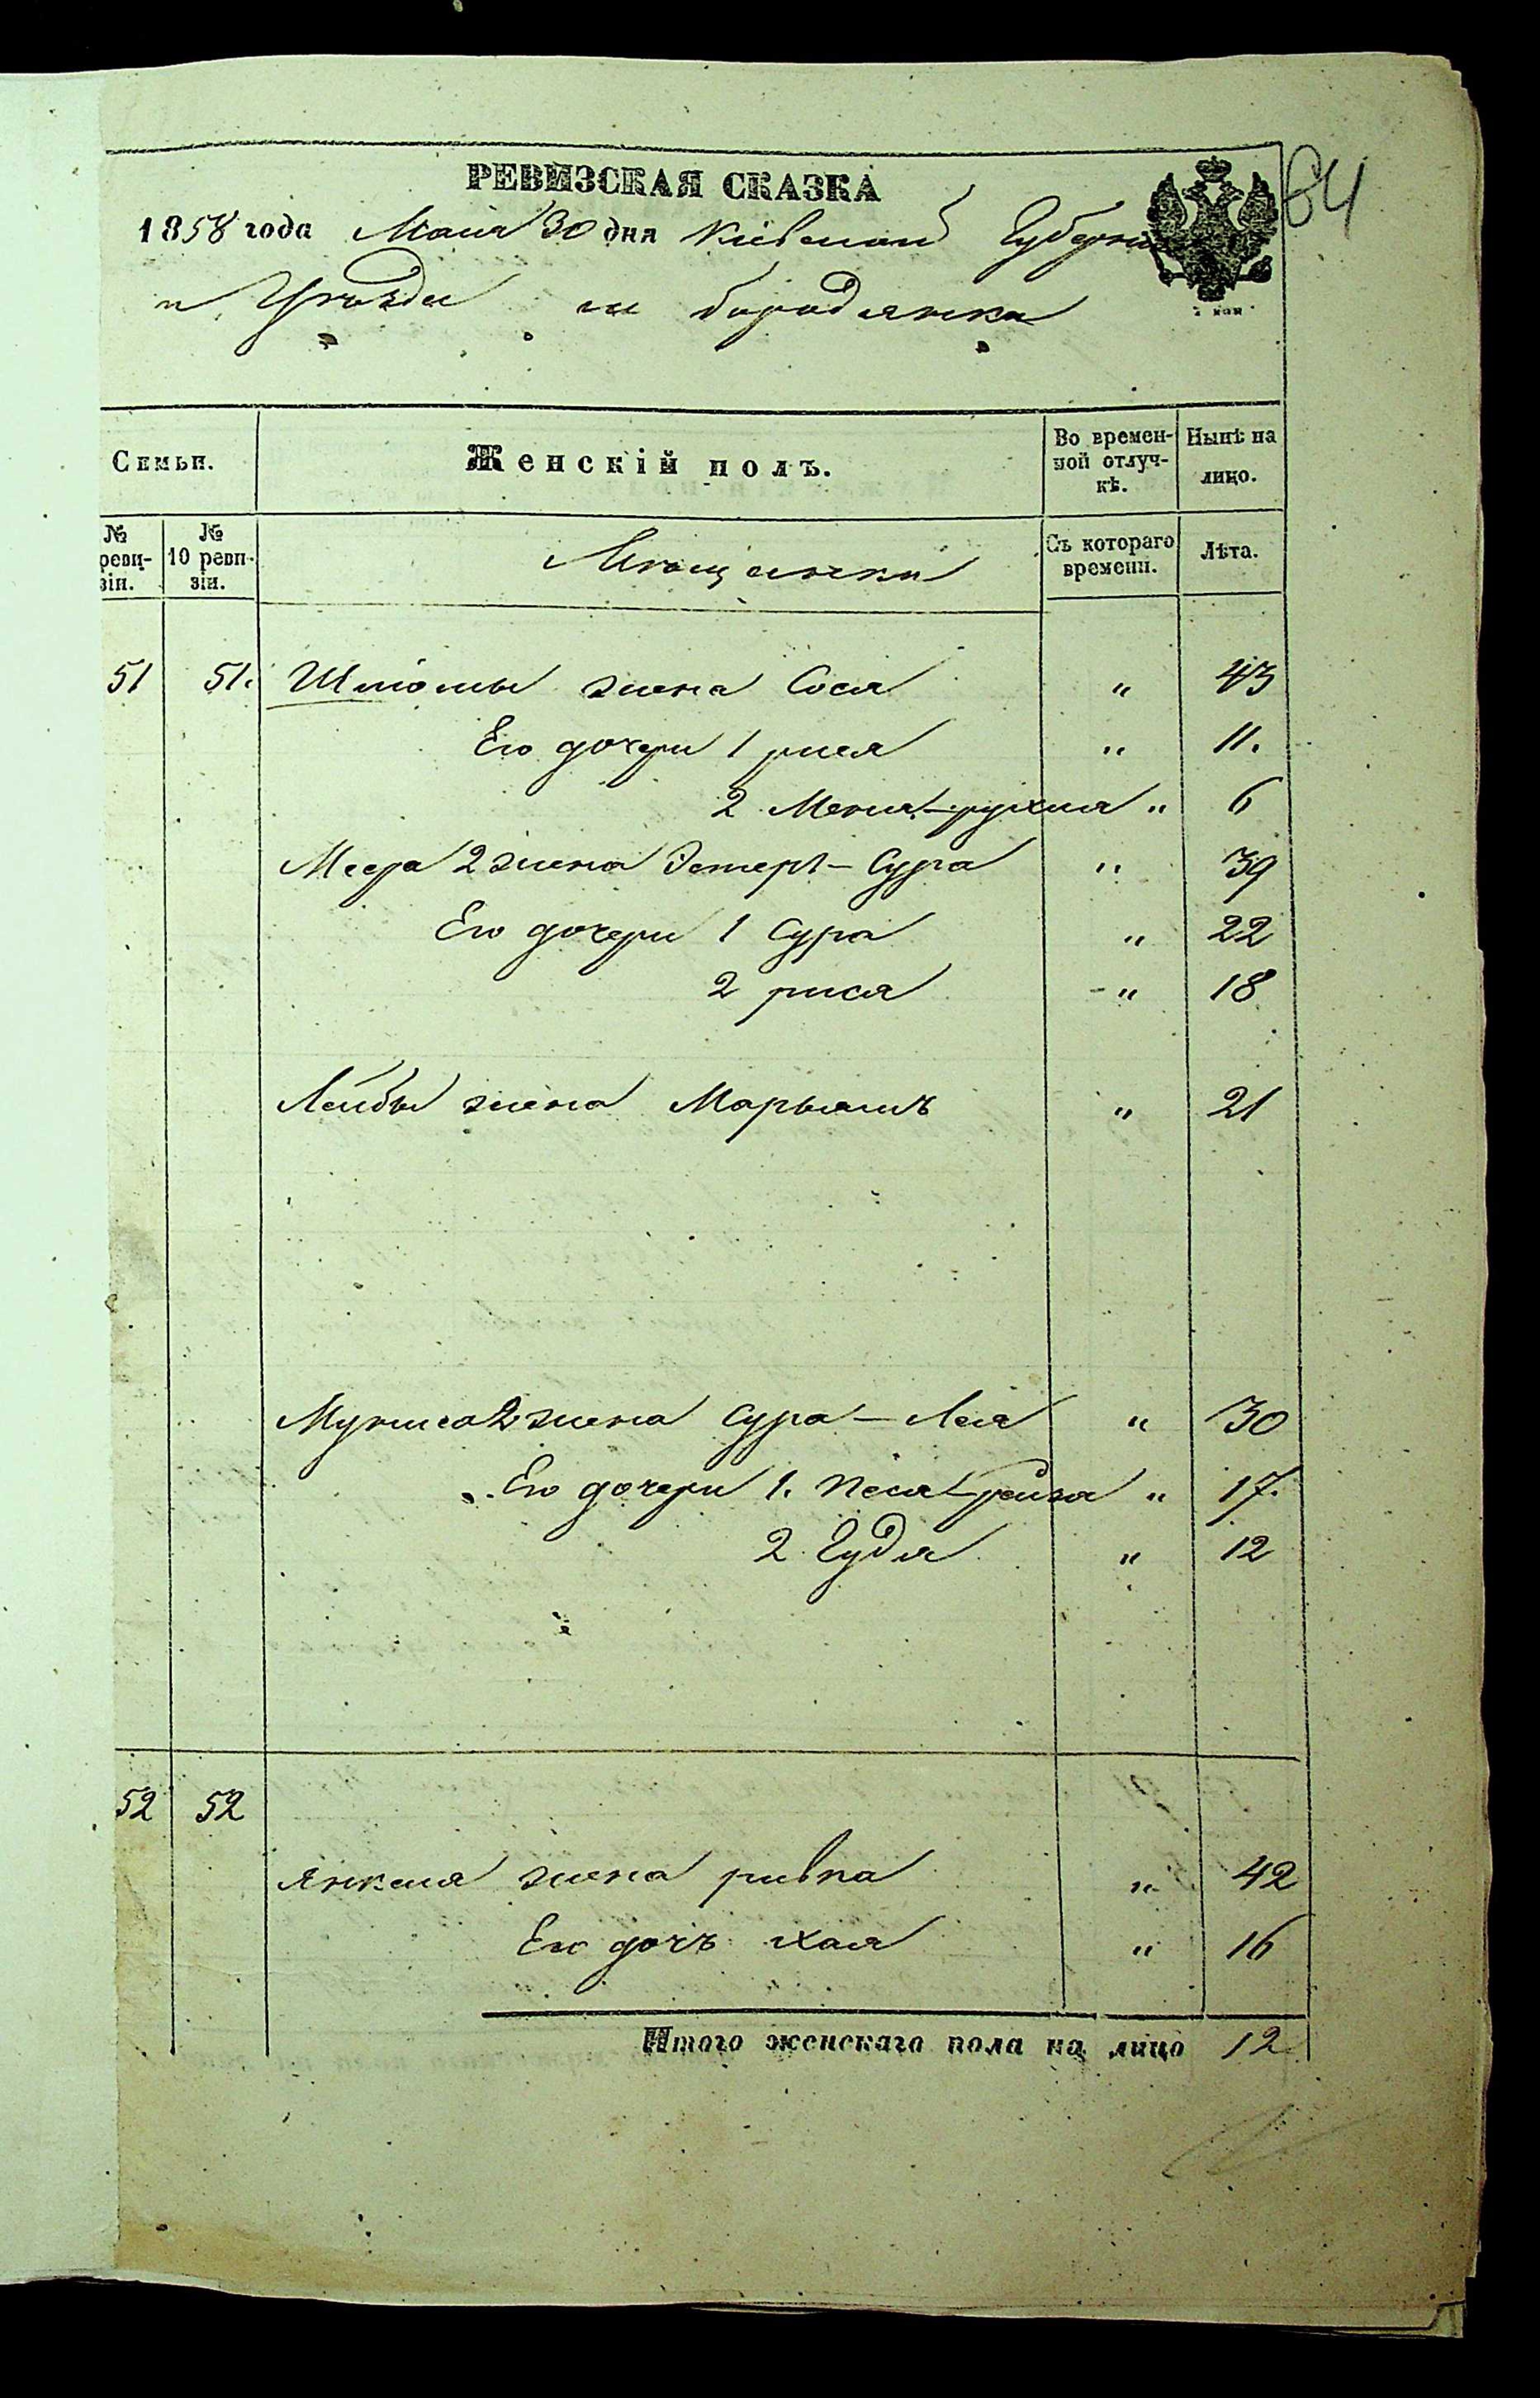 РЕВИЗСКАЯ СКАЗКА
64
1858 года Маія 30 дня Кіевской Губерніи
и Уѣзда м бородянка
2 коп
Семьи. Женскій полъ. Во времен-ной отлуч-кѣ. Нынѣ на лицо.
№ реви-зіи. № 10 реви-зіи. Мещанки Съ котораго времени. Лѣта.
51 51. Шломы жена Сося " 43
Его дочери 1 рися " 11.
2 Меня-рухля " 6
Меера 2 жена Эстеръ-Сура " 39
Его дочери 1 Сура " 22
2 рися " 18
Лейбы жена Марьямъ " 21
2 жена Сура-Лея " 30
Его дочери 1. Песя-рейза " 17.
2 Гудя " 12
52 52
Янкеля жена ривка " 42
Его дочь хая " 16
Итого женскаго пола на лицо 12